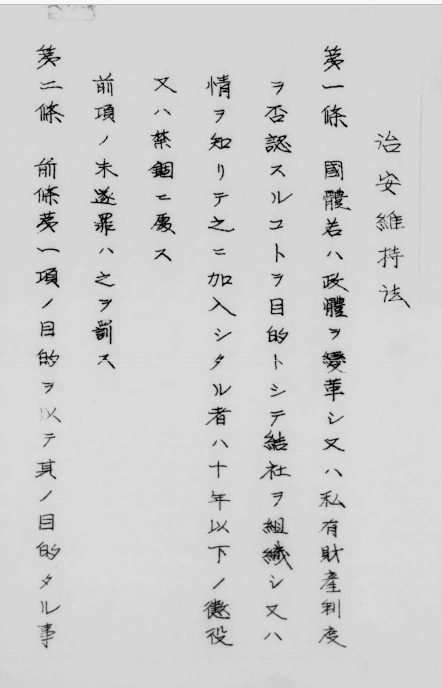 治安維持法
第一條　國體若ハ政體ヲ變革シ又ハ私有財產制度
ヲ否認スルコトヲ目的トシテ結社ヲ組織シ又ハ
情ヲ知リテ之ニ加入シタル者ハ十年以下ノ懲役
又ハ禁錮ニ處ス
前項ノ未遂罪ハ之ヲ罰ス
第二條　前條第一項ノ目的ヲ以テ其ノ目的タル事